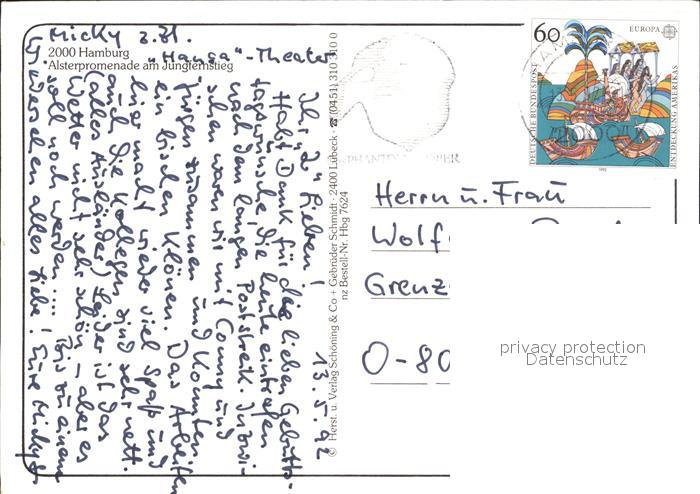 Micky z.Zt.
"Hansa"-Theater
2000 Hamburg
Alsterpromenade am Jungfernstieg
13.5.92
Ihr "2" Lieben!
Habt Dank für die lieben Geburts-
tagswünsche, die heute eintrafen
nach dem langen Poststreik. Inzwi-
schen waren wir mit Conny und
Jürgen zusammen und konnten
ein bischen klönen. Das Arbeiten
hier macht wieder viel Spaß und
auch die Kollegen sind sehr nett.
(alles Ausländer) Leider ist das
Wetter nicht sehr schön – aber es
soll noch werden.... Bis zu einem
werden alles Liebe! Eure Micky
© Herst. u. Verlag Schöning & Co + Gebrüder Schmidt · 2400 Lübeck · ☎ (0451) 310 310 0
nz Bestell-Nr. Hbg 7624
PHANTOM OPER
60
EUROPA
DEUTSCHE BUNDESPOST
ENTDECKUNG AMERIKAS
1992
Herrn u. Frau
Wolf
Grenz
O-80
privacy protection
Datenschutz